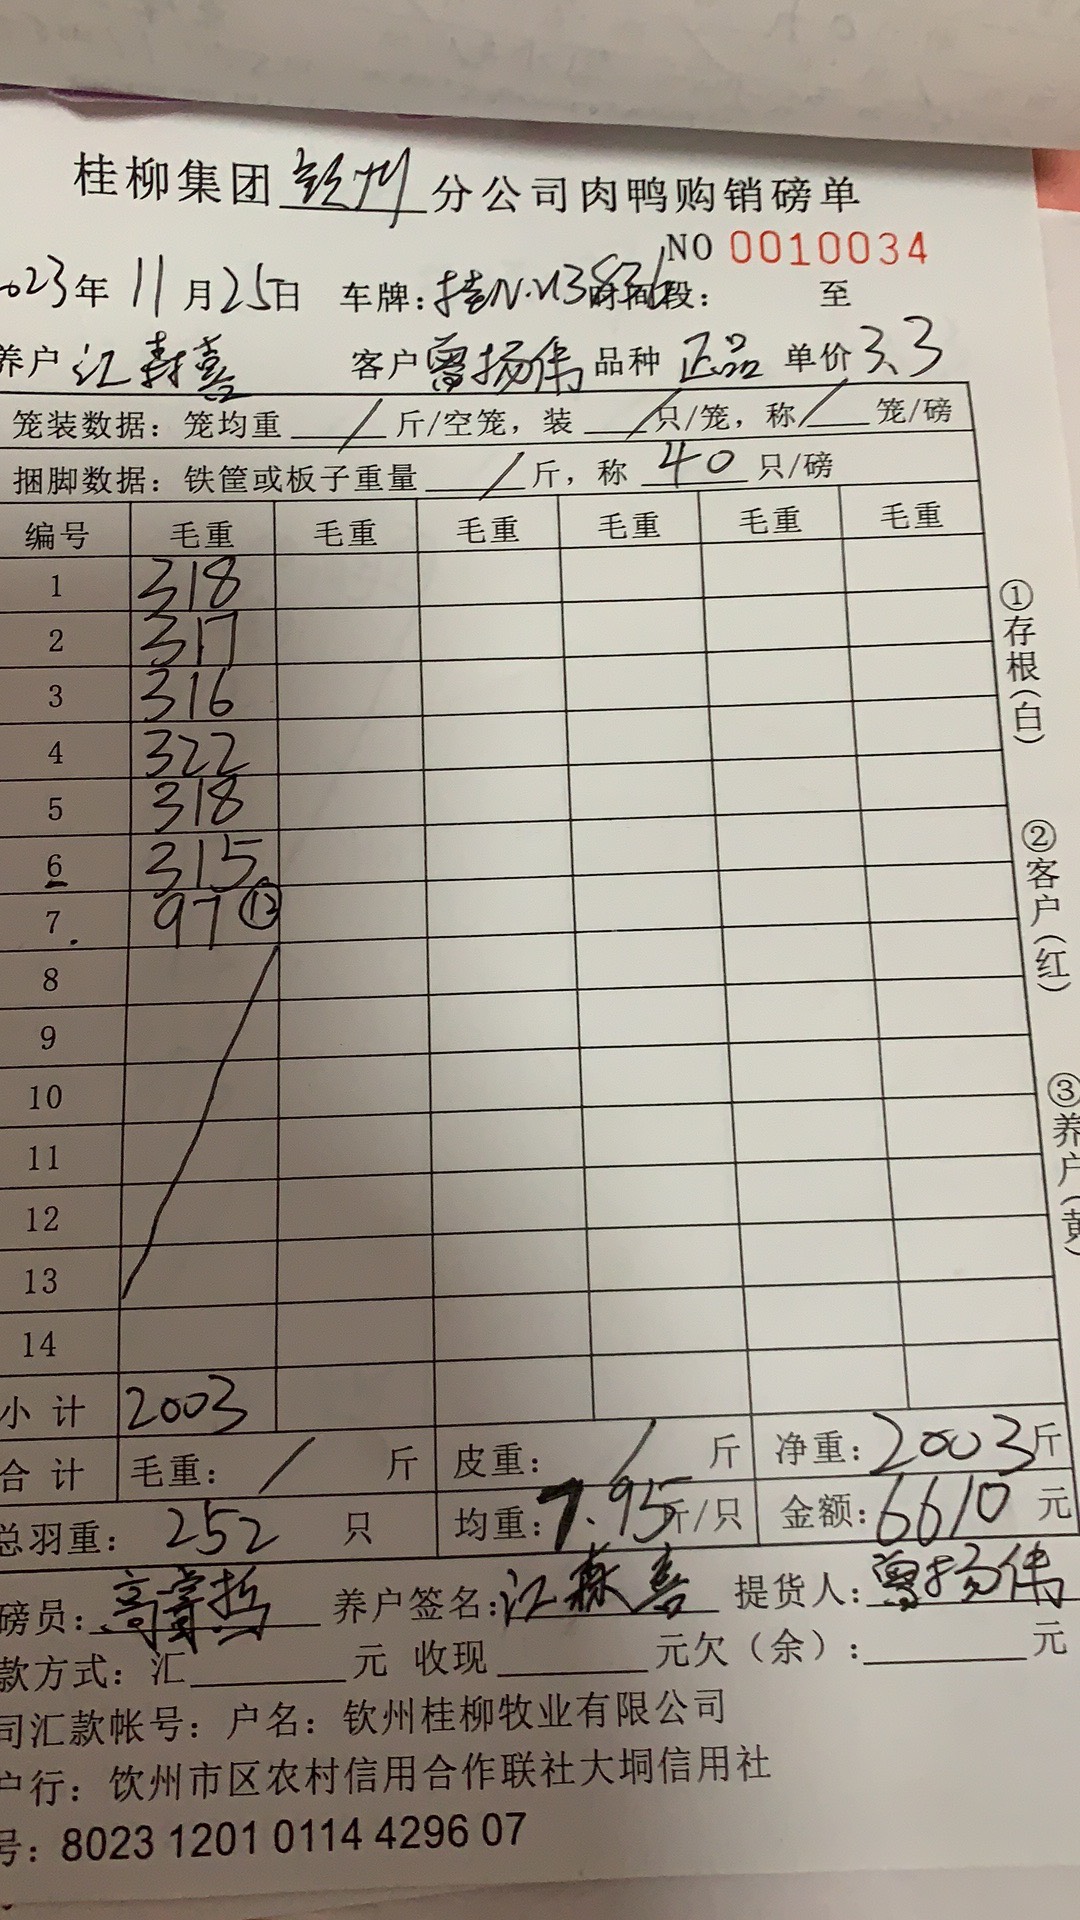 桂柳集团钦州分公司肉鸭购销磅单
NO 0010034
2023年11月25日 车牌:桂N·U3836 时间段: 至
养户 江森喜 客户 曾扬伟 品种 正品 单价 3.3
笼装数据: 笼均重 / 斤/空笼, 装 / 只/笼, 称 / 笼/磅
捆脚数据: 铁筐或板子重量 / 斤, 称 40 只/磅
编号 毛重 毛重 毛重 毛重 毛重 毛重
1 318
2 317
3 316
4 322
5 318
6 315
7 97 ⑫
8
9
10
11
12
13
14
小计 2003
合计 毛重: / 斤 皮重: / 斤 净重: 2003 斤
总羽重: 252 只 均重: 7.95 斤/只 金额: 6610 元
磅员: 养户签名: 江森喜 提货人: 曾扬伟
款方式: 汇 元 收现 元欠(余): 元
司汇款帐号: 户名: 钦州桂柳牧业有限公司
户行: 钦州市区农村信用合作联社大垌信用社
号: 8023 1201 0114 4296 07
①存根(白)
②客户(红)
③养户(黄)